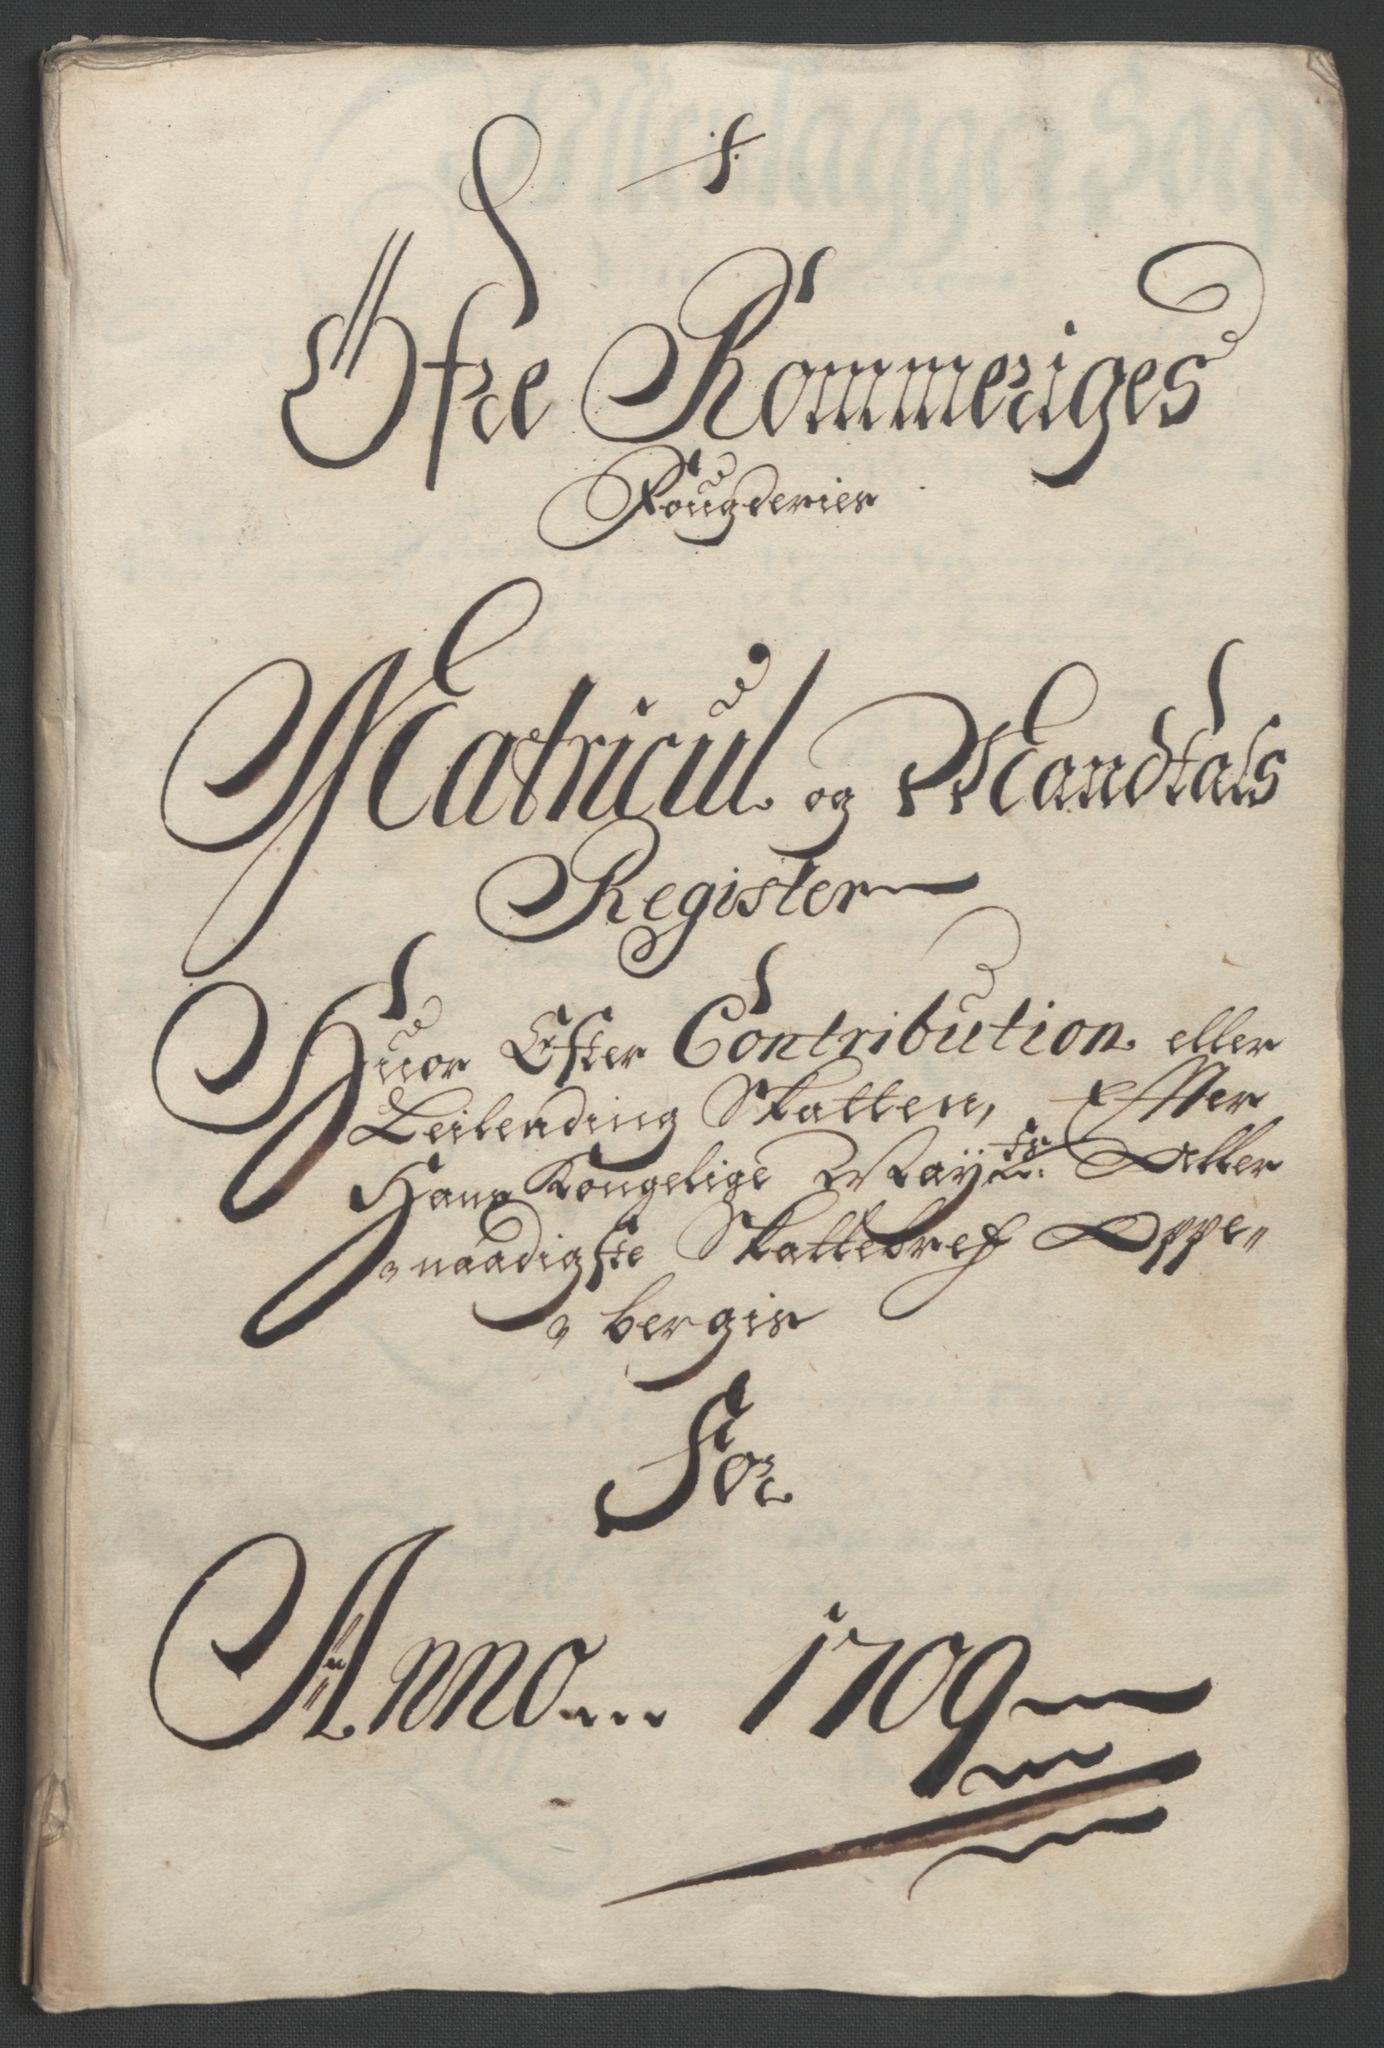 f.
Öfre Rommeriges
Fougderies
Matricul og Mandtals
Register
Huor Efter Contribution eller
Leilending Skatten, Effter
Hans Kongelige Mayts: Aller
naadigste Skattebref Oppe„
bergis
For
Anno... 1709